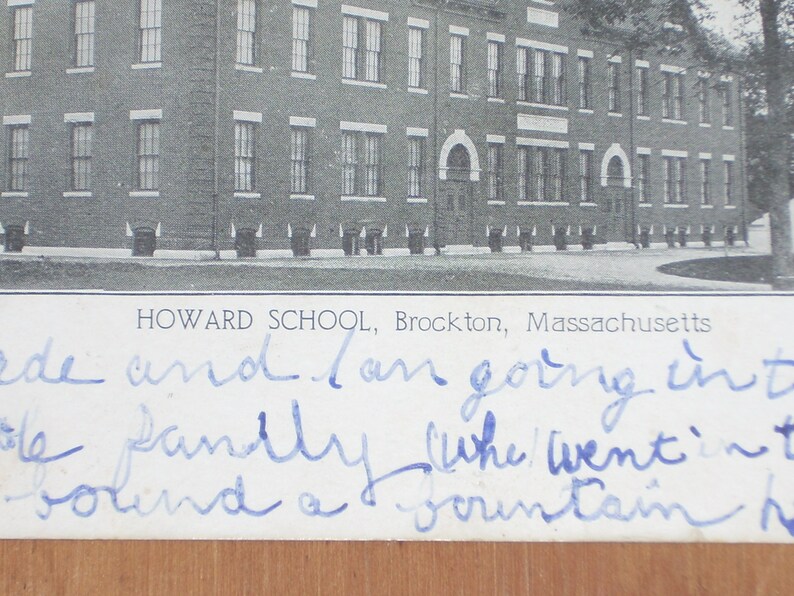 HOWARD SCHOOL, Brockton, Massachusetts
ede and I an going in t
family (who) went in t
bound a fountain h